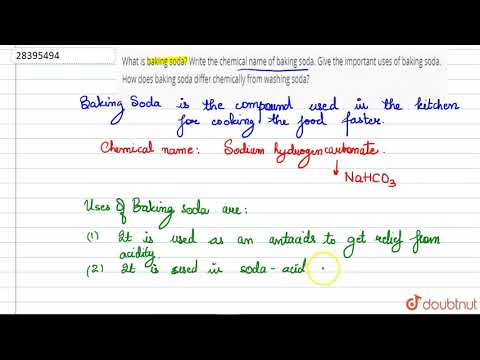 28395494
What is baking soda? Write the chemical name of baking soda. Give the important uses of baking soda.
How does baking soda differ chemically from washing soda?
Baking Soda is the compound used in the kitchen
for cooking the food faster.
Chemical name: Sodium hydrogencarbonate.
NaHCO3
Uses of Baking soda are:
(1) It is used as an antacids to get relief from
acidity.
(2) It is used in soda-acid
doubtnut